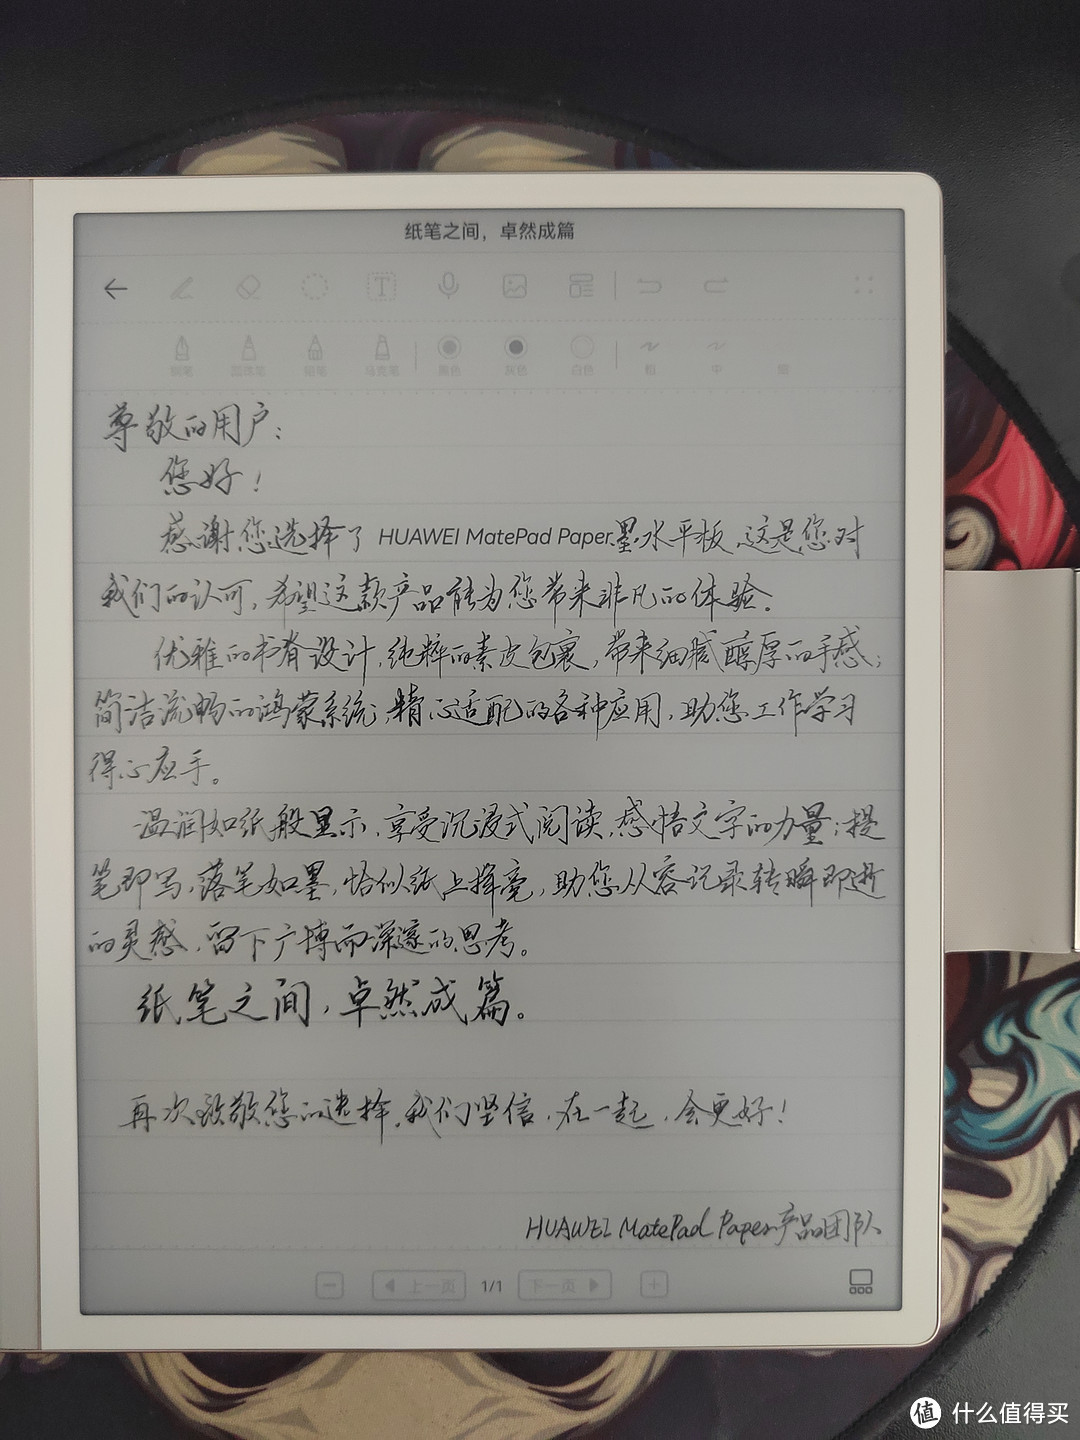 纸笔之间，卓然成篇
钢笔 圆珠笔 铅笔 马克笔 黑色 灰色 白色 粗 中 细
尊敬的用户：
您好！
感谢您选择了 HUAWEI MatePad Paper墨水平板，这是您对
我们的认可，希望这款产品能为您带来非凡的体验。
优雅的书脊设计，纯粹的素皮包裹，带来细腻醇厚的手感；
简洁流畅的鸿蒙系统，精心适配的各种应用，助您工作学习
得心应手。
温润如纸般显示，享受沉浸式阅读，感悟文字的力量；提
笔即写，落笔如墨，恰似纸上挥毫，助您从容记录转瞬即逝
的灵感，留下广博而深邃的思考。
纸笔之间，卓然成篇。
再次致敬您的选择，我们坚信，在一起，会更好！
HUAWEI MatePad Paper产品团队
上一页 1/1 下一页
值 什么值得买